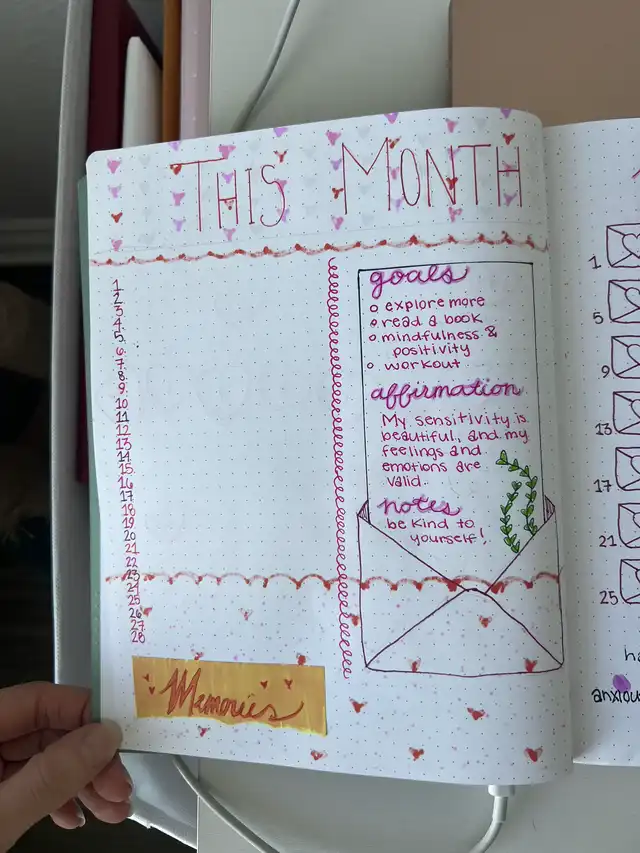 THIS MONTH
1
2
3
4
5
6
7
8
9
10
11
12
13
14
15
16
17
18
19
20
21
22
23
24
25
26
27
28
Memories
goals
explore more
read a book
mindfulness &
positivity
workout
affirmation
My sensitivity is
beautiful, and my
feelings and
emotions are
valid.
notes
be kind to
yourself!
1
5
9
13
17
21
25